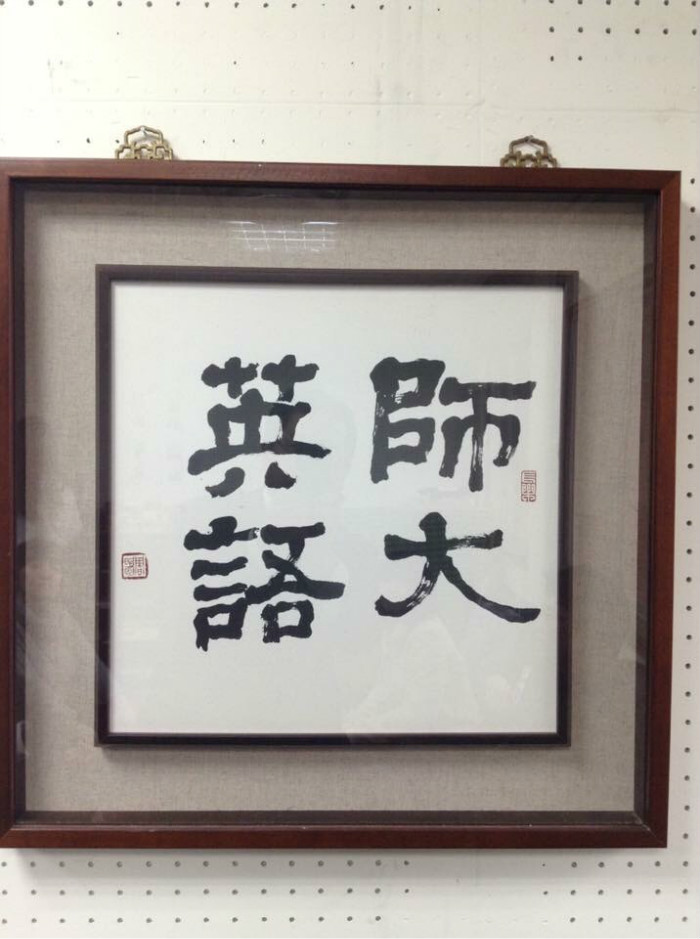 師大
英語